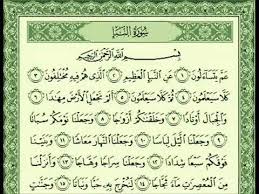 سُورَةُ النَّبَإِ
بِسْمِ اللَّهِ الرَّحْمَٰنِ الرَّحِيمِ
عَمَّ يَتَسَاءَلُونَ ١ عَنِ النَّبَإِ الْعَظِيمِ ٢ الَّذِي هُمْ فِيهِ مُخْتَلِفُونَ ٣
كَلَّا سَيَعْلَمُونَ ٤ ثُمَّ كَلَّا سَيَعْلَمُونَ ٥ أَلَمْ نَجْعَلِ الْأَرْضَ مِهَادًا ٦
وَالْجِبَالَ أَوْتَادًا ٧ وَخَلَقْنَاكُمْ أَزْوَاجًا ٨ وَجَعَلْنَا نَوْمَكُمْ سُبَاتًا
٩ وَجَعَلْنَا اللَّيْلَ لِبَاسًا ١٠ وَجَعَلْنَا النَّهَارَ مَعَاشًا ١١ وَبَنَيْنَا
فَوْقَكُمْ سَبْعًا شِدَادًا ١٢ وَجَعَلْنَا سِرَاجًا وَهَّاجًا ١٣ وَأَنْزَلْنَا
مِنَ الْمُعْصِرَاتِ مَاءً ثَجَّاجًا ١٤ لِنُخْرِجَ بِهِ حَبًّا وَنَبَاتًا ١٥